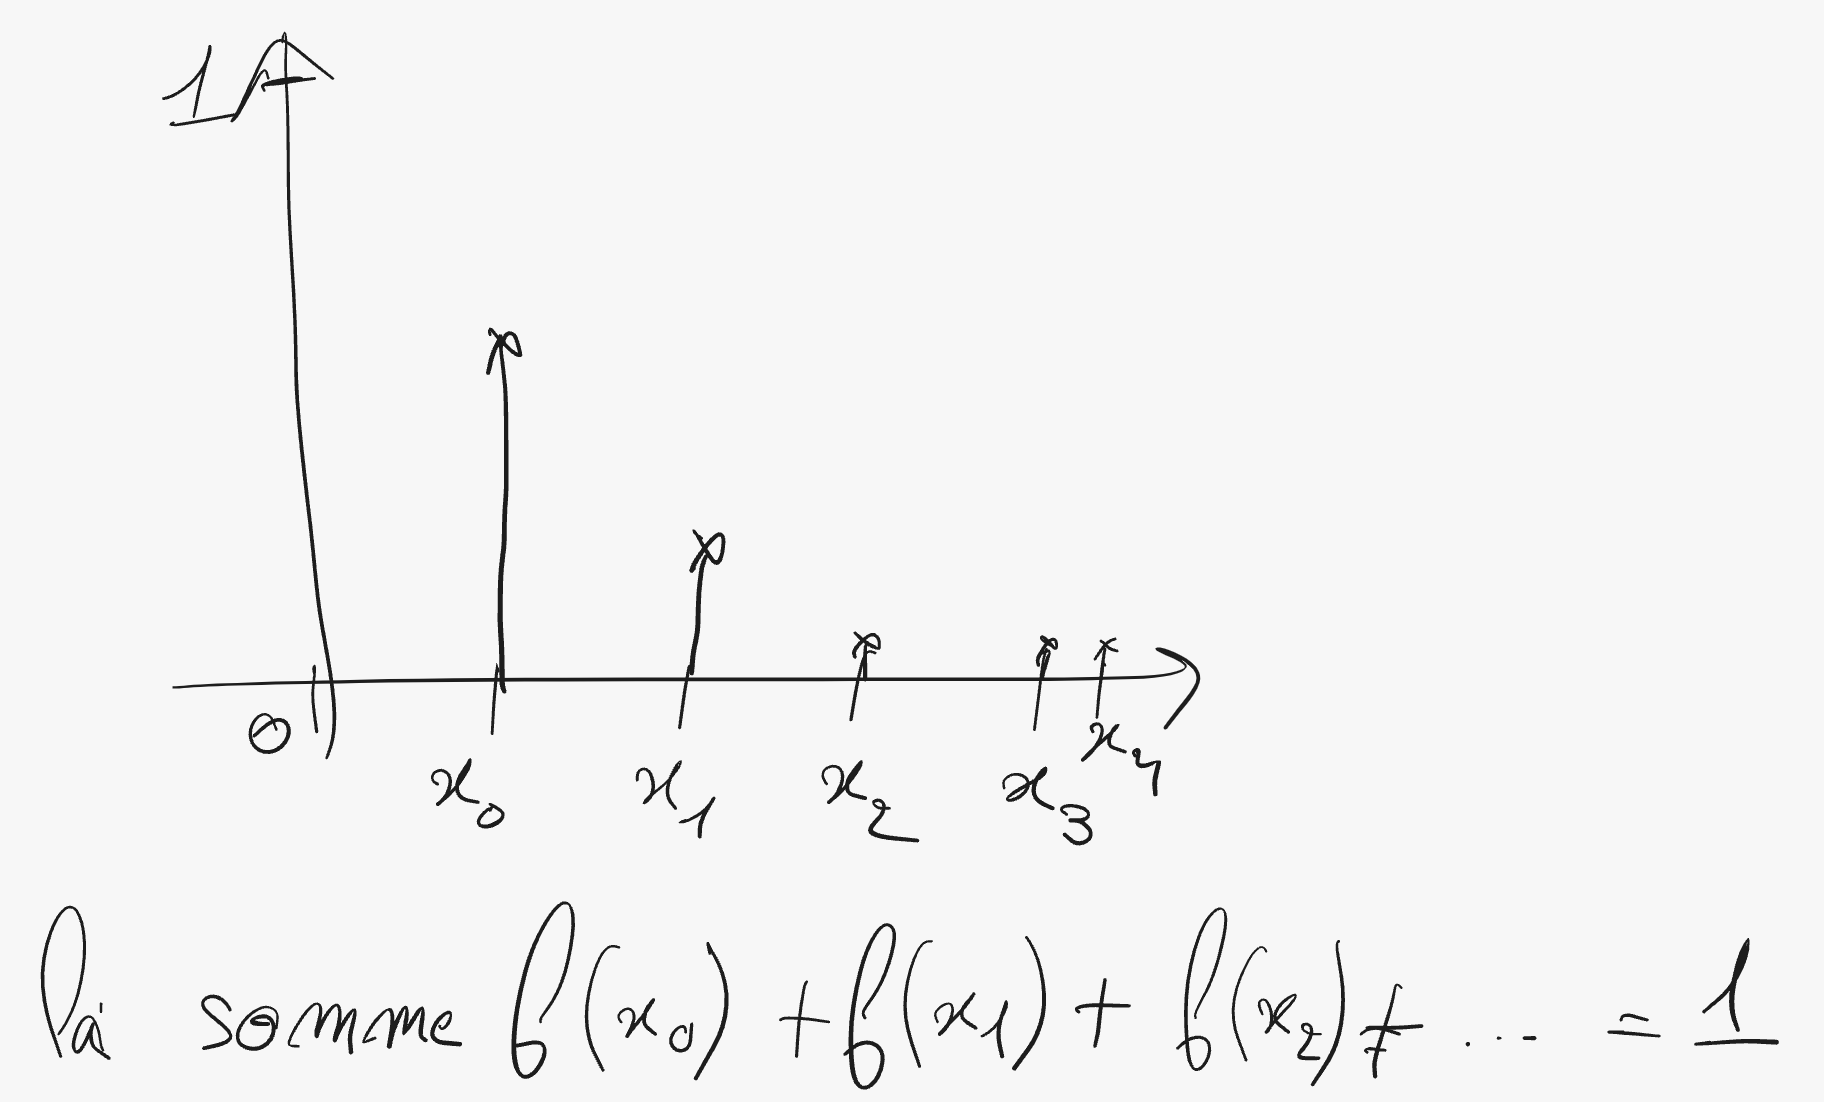 1
0
x₀ x₁ x₂ x₃ x₄
la somme f(x₀) + f(x₁) + f(x₂) + .... = 1